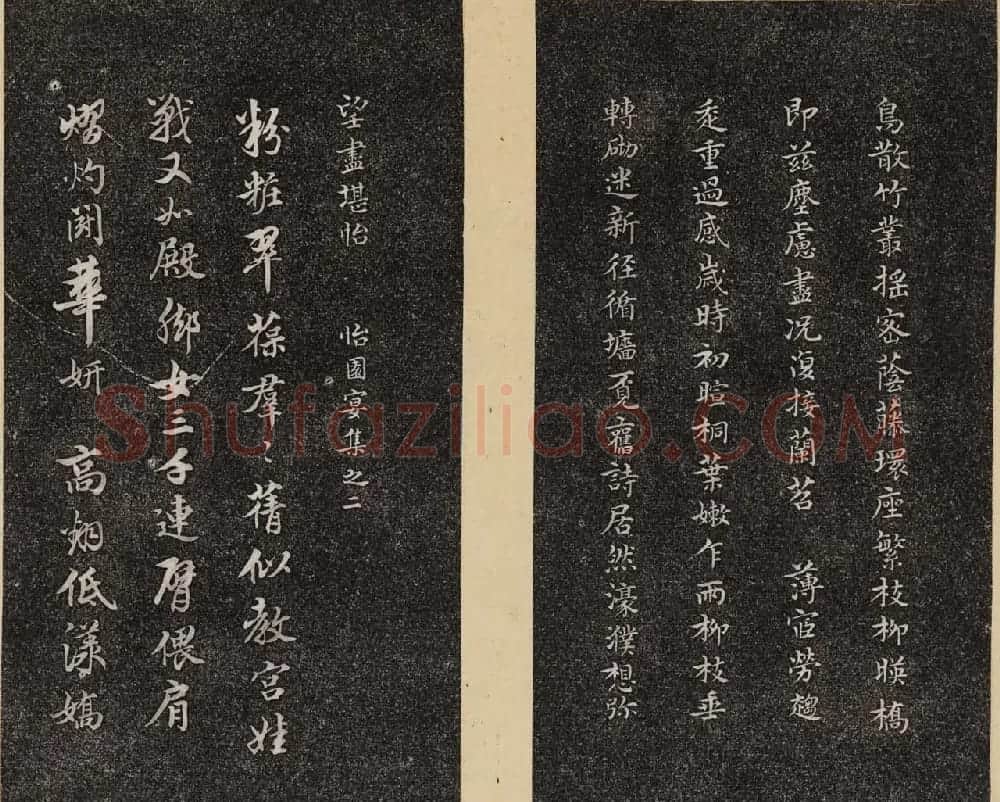 鳥散竹叢摇密蔭藤環座繁枝柳暎橋
即兹塵慮盡况復接蘭苕 薄宦勞趨
走重過感歲時初暄桐葉嫩乍雨柳枝垂
轉砌迷新径循墻覓舊詩居然濠濮想弥
望盡堪怡 怡園宴集之二
粉粧翠葆羣〻蒨似教宫娃
戰又如殿脚女三千連臂偎肩
熠灼閗華妍高翔低漾嬌
Shufaziliao.COM